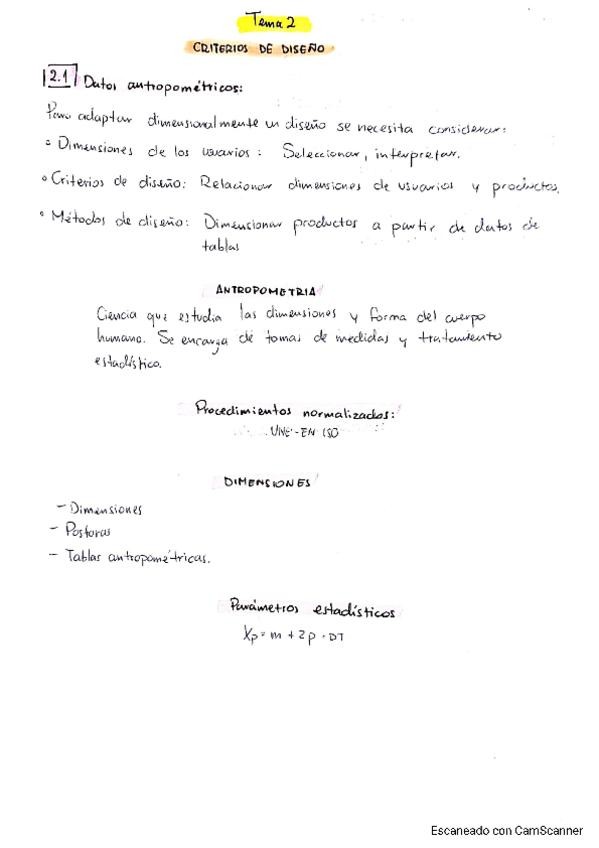 Tema 2
CRITERIOS DE DISEÑO
2.1 Datos antropométricos:
Para adaptar dimensionalmente un diseño se necesita considerar:
• Dimensiones de los usuarios: Seleccionar, interpretar.
• Criterios de diseño: Relacionar dimensiones de usuarios y productos.
• Métodos de diseño: Dimensionar productos a partir de datos de
tablas
ANTROPOMETRIA
Ciencia que estudia las dimensiones y forma del cuerpo
humano. Se encarga de tomas de medidas y tratamiento
estadístico.
Procedimientos normalizados:
UNE-EN ISO
DIMENSIONES
- Dimensiones
- Posturas
- Tablas antropométricas.
Parámetros estadísticos
Xp = m + Zp · DT
Escaneado con CamScanner